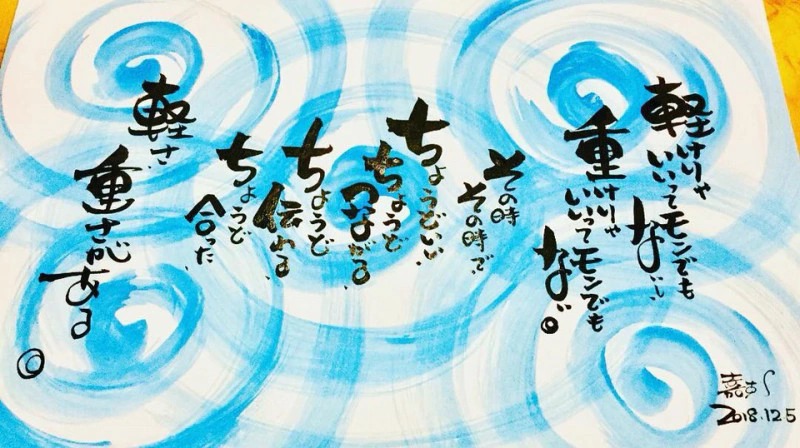 軽けりゃ
いいってモンでも
ない、
重けりゃ
いいってモンでも
ない。
その時
その時で
ちょうどいい、
ちょうど
つながる、
ちょうど
伝わる、
ちょうど
合った、
軽さ、
重さが
ある。
2018.12.5